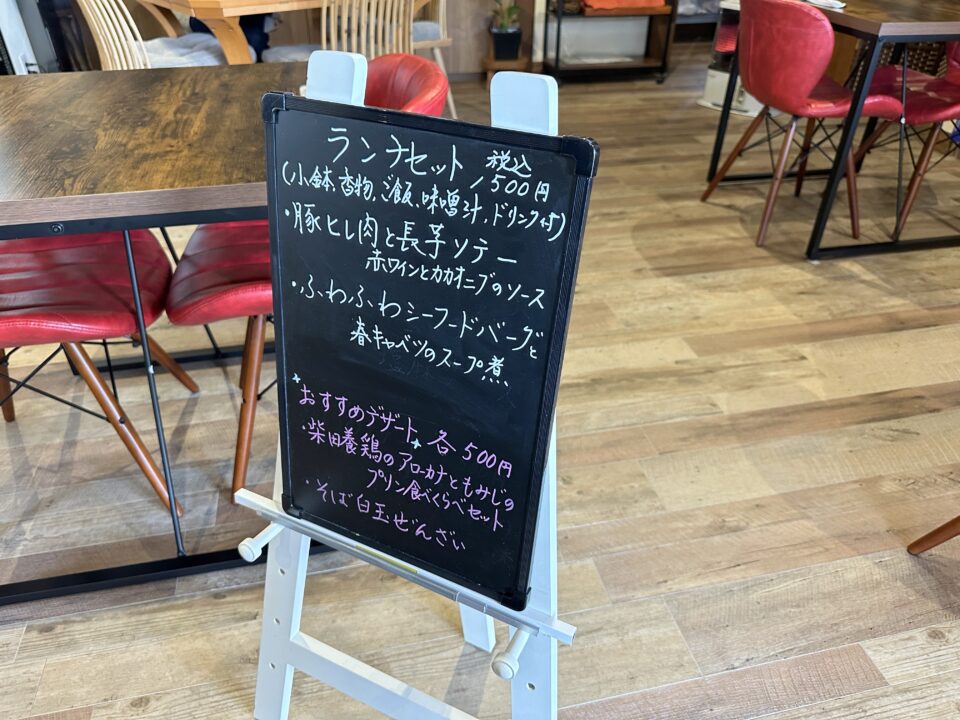 ランチセット 税込
1,500円
(小鉢、香物、ご飯、味噌汁、ドリンク付)
・豚ヒレ肉と長芋ソテー
赤ワインとカカオニブのソース
・ふわふわシーフドバーグと
春キャベツのスープ煮
おすすめデザート 各500円
・柴田養鶏のアローカナともみじの
プリン食べくらべセット
・そば白玉ぜんざい